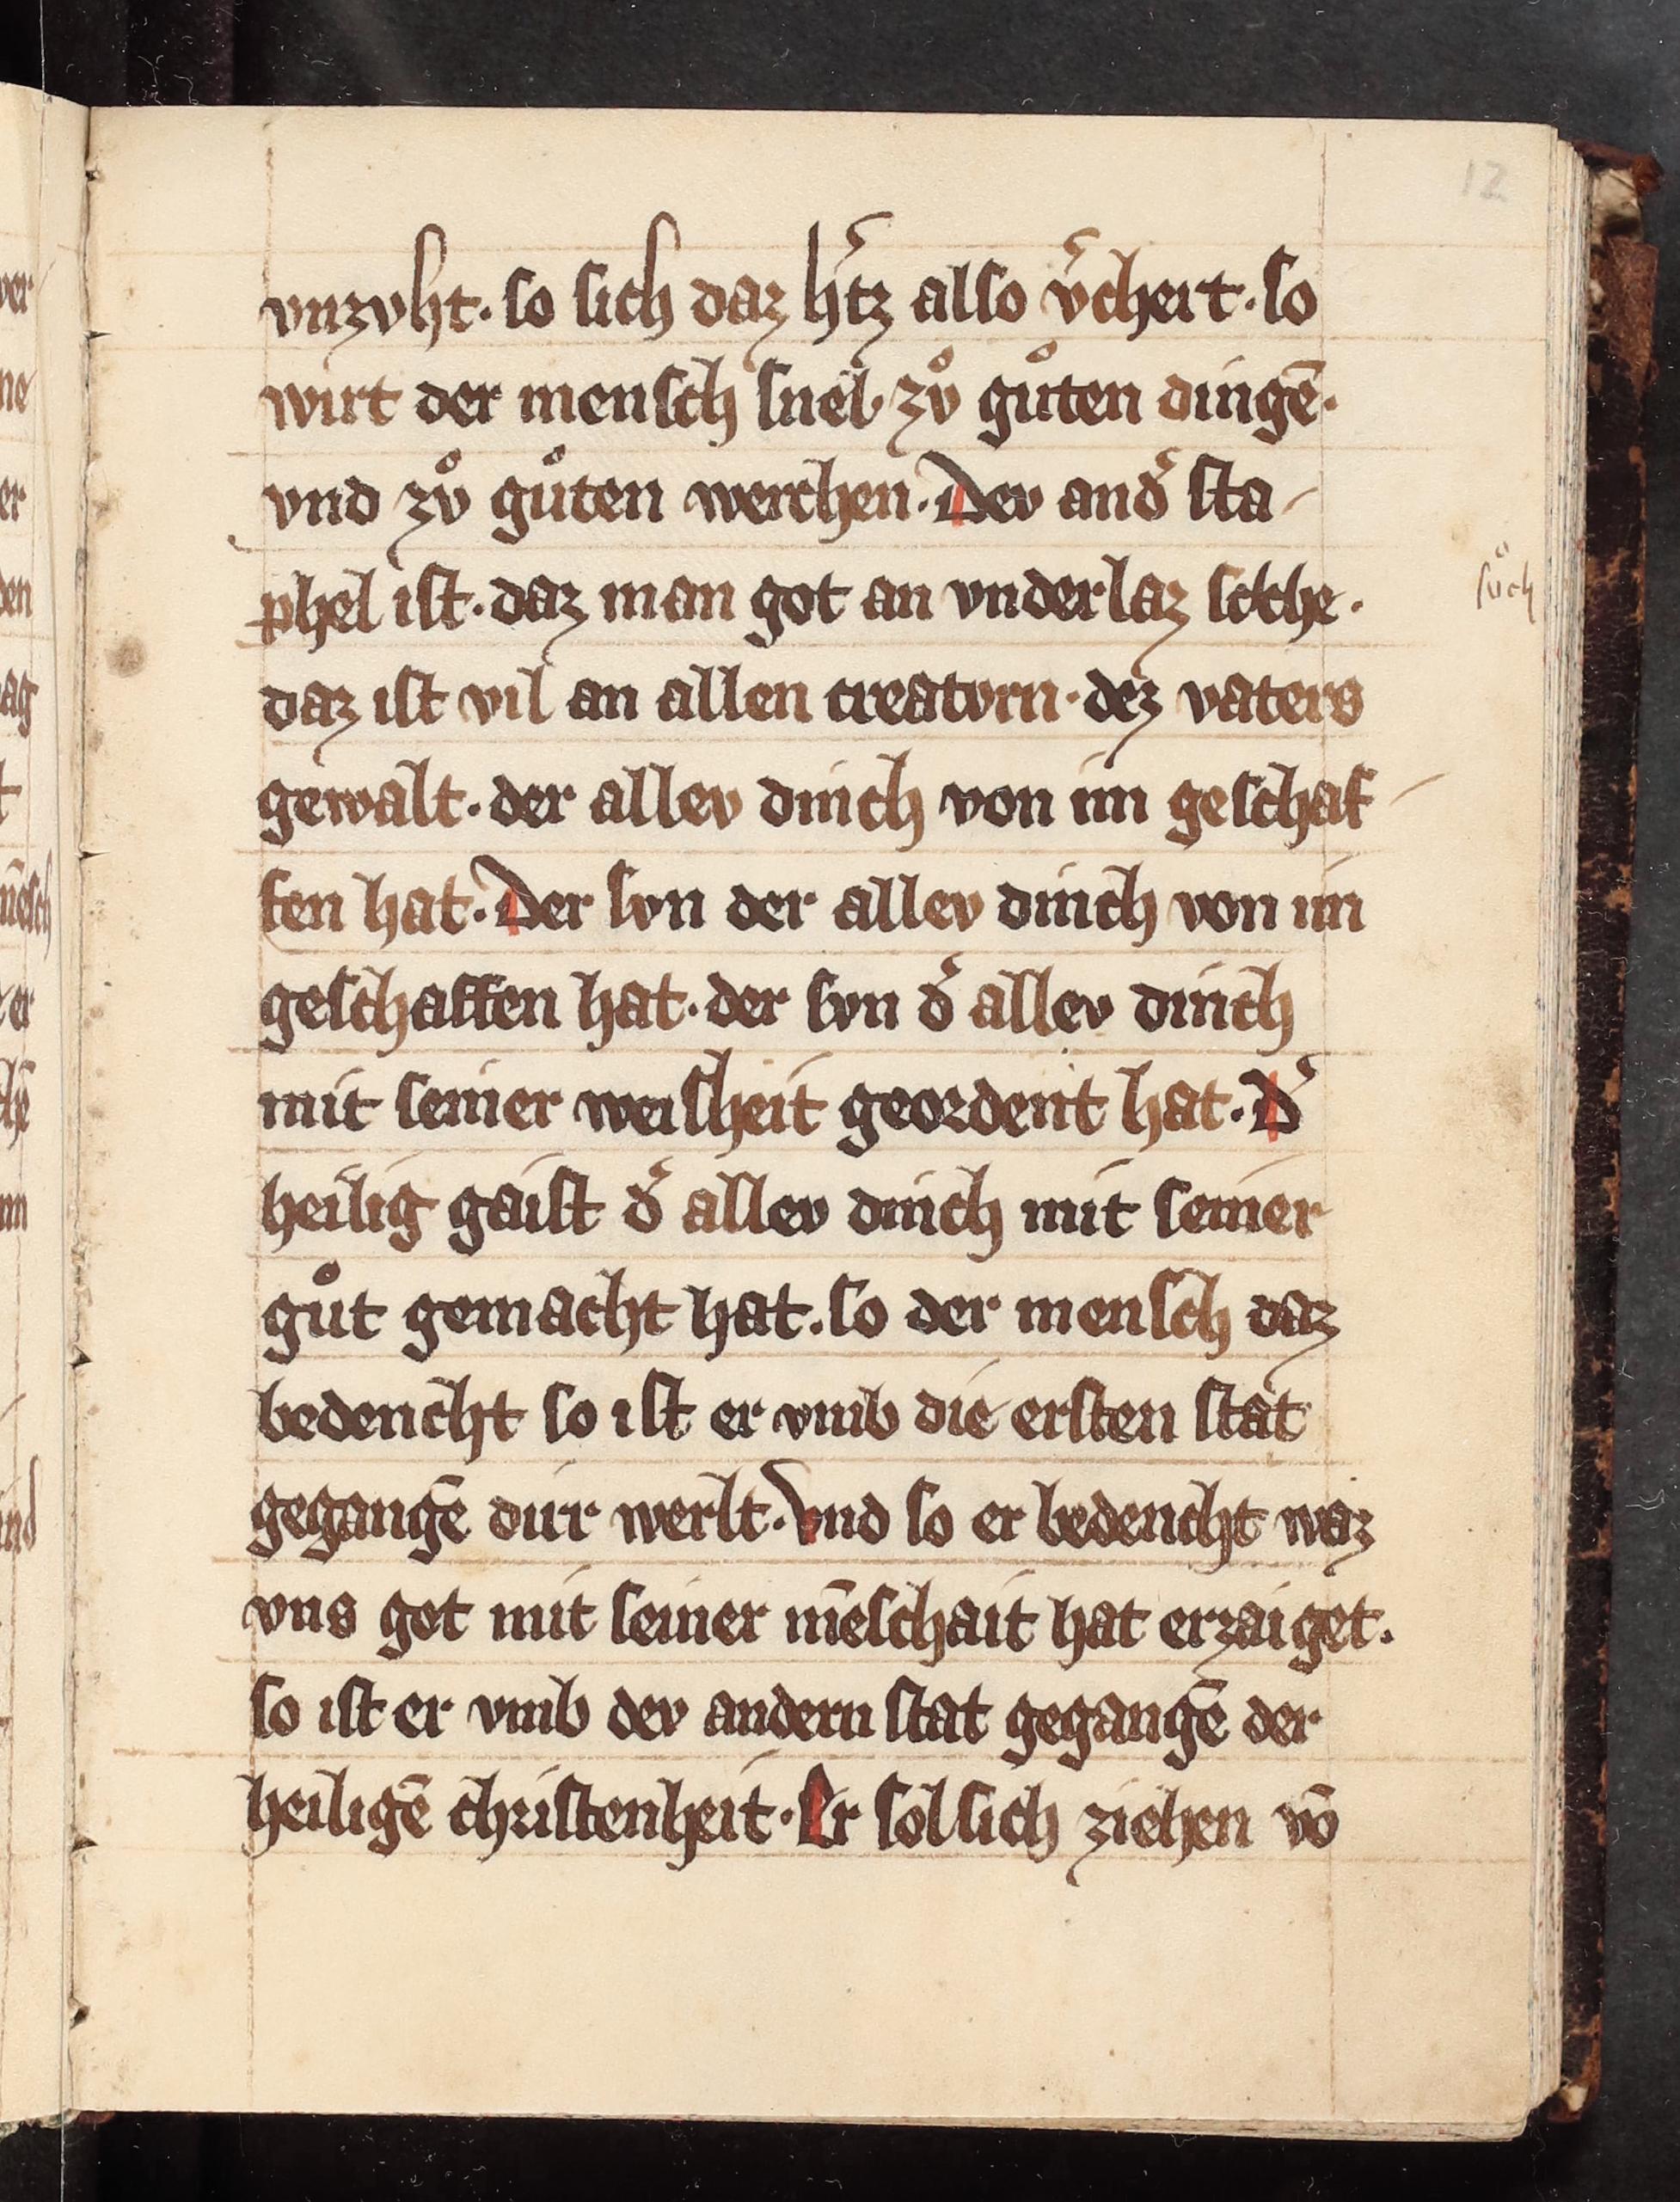 12
vnzvht. so sich daz h͛tz also v͛chert. so
wirt der mensch snel zvͦ guͦten dingē.
vnd zvͦ guͦten werchen. Dev and͛ sta
phel ist. daz man got an vnderlaz sckhe.
suͦch
daz ist vil an allen creatvrn. dez vaters
gewalt. der allev dinch von im geschaf
fen hat. Der svn der allev dinch von im
geschaffen hat. der svn d͛ allev dinch
mit seiner weisheit geordent hat. D͛
heilig gaist d͛ allev dinch mit seiner
guͦt gemacht hat. so der mensch daz
bedencht so ist er vmb die ersten stat
gegangē dirr werlt. Vnd so er bedencht waz
vns got mit seiner mēschait hat erzaiget.
so ist er vmb dev andern stat gegangē der
heiligē christenheit. Er sol sich ziehen vō